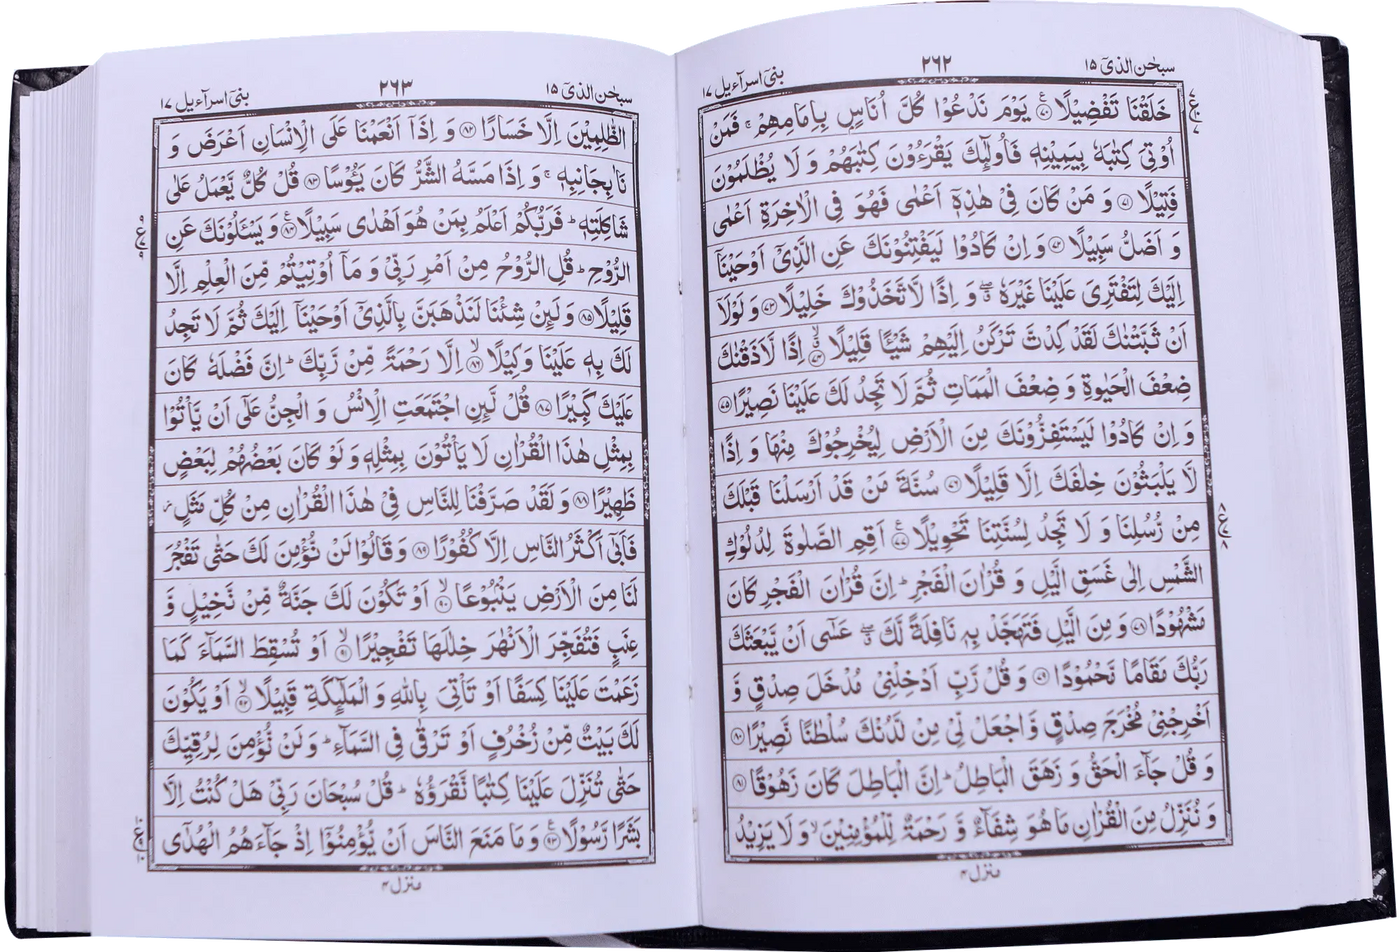 سبحٰن الذیٓ ۱۵
۲۶۲
بنیٓ اسرآءیل ۱۷
خَلَقْنَا تَفْضِيْلًا ﴿۷۰﴾ يَوْمَ نَدْعُوْا كُلَّ اُنَاسٍۭ بِاِمَامِهِمْ ۚ فَمَنْ
اُوْتِىَ كِتٰبَهٗ بِيَمِيْنِهٖ فَاُولٰٓئِكَ يَقْرَءُوْنَ كِتٰبَهُمْ وَ لَا يُظْلَمُوْنَ
فَتِيْلًا ﴿۷۱﴾ وَ مَنْ كَانَ فِىْ هٰذِهٖٓ اَعْمٰى فَهُوَ فِى الْاٰخِرَةِ اَعْمٰى
وَ اَضَلُّ سَبِيْلًا ﴿۷۲﴾ وَ اِنْ كَادُوْا لَيَفْتِنُوْنَكَ عَنِ الَّذِىْٓ اَوْحَيْنَاۤ
اِلَيْكَ لِتَفْتَرِىَ عَلَيْنَا غَيْرَهٗ ۖۗ وَ اِذًا لَّاتَّخَذُوْكَ خَلِيْلًا ﴿۷۳﴾ وَ لَوْلَاۤ
اَنْ ثَبَّتْنٰكَ لَقَدْ كِدْتَّ تَرْكَنُ اِلَيْهِمْ شَيْـًٔا قَلِيْلًا ﴿۷۴﴾ۙ اِذًا لَّاَذَقْنٰكَ
ضِعْفَ الْحَيٰوةِ وَ ضِعْفَ الْمَمَاتِ ثُمَّ لَا تَجِدُ لَكَ عَلَيْنَا نَصِيْرًا ﴿۷۵﴾
وَ اِنْ كَادُوْا لَيَسْتَفِزُّوْنَكَ مِنَ الْاَرْضِ لِيُخْرِجُوْكَ مِنْهَا وَ اِذًا
لَّا يَلْبَثُوْنَ خِلٰفَكَ اِلَّا قَلِيْلًا ﴿۷۶﴾ سُنَّةَ مَنْ قَدْ اَرْسَلْنَا قَبْلَكَ
مِنْ رُّسُلِنَا وَ لَا تَجِدُ لِسُنَّتِنَا تَحْوِيْلًا ﴿۷۷﴾ اَقِمِ الصَّلٰوةَ لِدُلُوْكِ
الشَّمْسِ اِلٰى غَسَقِ الَّيْلِ وَ قُرْاٰنَ الْفَجْرِ ؕ اِنَّ قُرْاٰنَ الْفَجْرِ كَانَ
مَشْهُوْدًا ﴿۷۸﴾ وَ مِنَ الَّيْلِ فَتَهَجَّدْ بِهٖ نَافِلَةً لَّكَ ۖۗ عَسٰٓى اَنْ يَّبْعَثَكَ
رَبُّكَ مَقَامًا مَّحْمُوْدًا ﴿۷۹﴾ وَ قُلْ رَّبِّ اَدْخِلْنِىْ مُدْخَلَ صِدْقٍ وَّ
اَخْرِجْنِىْ مُخْرَجَ صِدْقٍ وَّ اجْعَلْ لِّىْ مِنْ لَّدُنْكَ سُلْطٰنًا نَّصِيْرًا ﴿۸۰﴾
وَ قُلْ جَآءَ الْحَقُّ وَ زَهَقَ الْبَاطِلُ ؕ اِنَّ الْبَاطِلَ كَانَ زَهُوْقًا ﴿۸۱﴾
وَ نُنَزِّلُ مِنَ الْقُرْاٰنِ مَا هُوَ شِفَآءٌ وَّ رَحْمَةٌ لِّلْمُؤْمِنِيْنَ ۙ وَ لَا يَزِيْدُ
منزل ۴
سبحٰن الذیٓ ۱۵
۲۶۳
بنیٓ اسرآءیل ۱۷
الظّٰلِمِيْنَ اِلَّا خَسَارًا ﴿۸۲﴾ وَ اِذَاۤ اَنْعَمْنَا عَلَى الْاِنْسَانِ اَعْرَضَ وَ
نَاٰ بِجَانِبِهٖ ۚ وَ اِذَا مَسَّهُ الشَّرُّ كَانَ يَـُٔوْسًا ﴿۸۳﴾ قُلْ كُلٌّ يَّعْمَلُ عَلٰى
شَاكِلَتِهٖ ؕ فَرَبُّكُمْ اَعْلَمُ بِمَنْ هُوَ اَهْدٰى سَبِيْلًا ﴿۸۴﴾ وَ يَسْـَٔلُوْنَكَ عَنِ
الرُّوْحِ ؕ قُلِ الرُّوْحُ مِنْ اَمْرِ رَبِّىْ وَ مَاۤ اُوْتِيْتُمْ مِّنَ الْعِلْمِ اِلَّا
قَلِيْلًا ﴿۸۵﴾ وَ لَئِنْ شِئْنَا لَنَذْهَبَنَّ بِالَّذِىْٓ اَوْحَيْنَاۤ اِلَيْكَ ثُمَّ لَا تَجِدُ
لَكَ بِهٖ عَلَيْنَا وَكِيْلًا ﴿۸۶﴾ۙ اِلَّا رَحْمَةً مِّنْ رَّبِّكَ ؕ اِنَّ فَضْلَهٗ كَانَ
عَلَيْكَ كَبِيْرًا ﴿۸۷﴾ قُلْ لَّئِنِ اجْتَمَعَتِ الْاِنْسُ وَ الْجِنُّ عَلٰٓى اَنْ يَّاْتُوْا
بِمِثْلِ هٰذَا الْقُرْاٰنِ لَا يَاْتُوْنَ بِمِثْلِهٖ وَ لَوْ كَانَ بَعْضُهُمْ لِبَعْضٍ
ظَهِيْرًا ﴿۸۸﴾ وَ لَقَدْ صَرَّفْنَا لِلنَّاسِ فِىْ هٰذَا الْقُرْاٰنِ مِنْ كُلِّ مَثَلٍ ؗ
فَاَبٰٓى اَكْثَرُ النَّاسِ اِلَّا كُفُوْرًا ﴿۸۹﴾ وَ قَالُوْا لَنْ نُّؤْمِنَ لَكَ حَتّٰى تَفْجُرَ
لَنَا مِنَ الْاَرْضِ يَنْۢبُوْعًا ﴿۹۰﴾ۙ اَوْ تَكُوْنَ لَكَ جَنَّةٌ مِّنْ نَّخِيْلٍ وَّ
عِنَبٍ فَتُفَجِّرَ الْاَنْهٰرَ خِلٰلَهَا تَفْجِيْرًا ﴿۹۱﴾ۙ اَوْ تُسْقِطَ السَّمَآءَ كَمَا
زَعَمْتَ عَلَيْنَا كِسَفًا اَوْ تَاْتِىَ بِاللّٰهِ وَ الْمَلٰٓئِكَةِ قَبِيْلًا ﴿۹۲﴾ۙ اَوْ يَكُوْنَ
لَكَ بَيْتٌ مِّنْ زُخْرُفٍ اَوْ تَرْقٰى فِى السَّمَآءِ ؕ وَ لَنْ نُّؤْمِنَ لِرُقِيِّكَ
حَتّٰى تُنَزِّلَ عَلَيْنَا كِتٰبًا نَّقْرَؤُهٗ ؕ قُلْ سُبْحَانَ رَبِّىْ هَلْ كُنْتُ اِلَّا
بَشَرًا رَّسُوْلًا ﴿۹۳﴾ وَ مَا مَنَعَ النَّاسَ اَنْ يُّؤْمِنُوْٓا اِذْ جَآءَهُمُ الْهُدٰٓى
منزل ۴